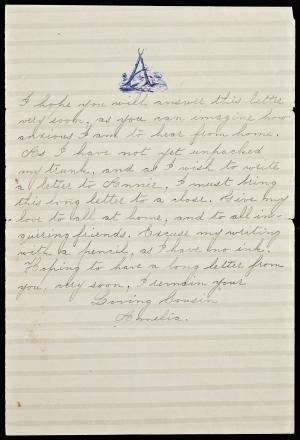 I hope you will answer this letter
very soon, as you can imagine how
anxious I am to hear from home.
As I have not yet unpacked
my trunk, and as I wish to write
a letter to Annie, I must bring
this long letter to a close. Give my
love to all at home, and to all in-
quiring friends. Excuse my writing
with a pencil, as I have no ink.
Hoping to have a long letter from
you, very soon, I remain your
Loving Cousin
Amelia.